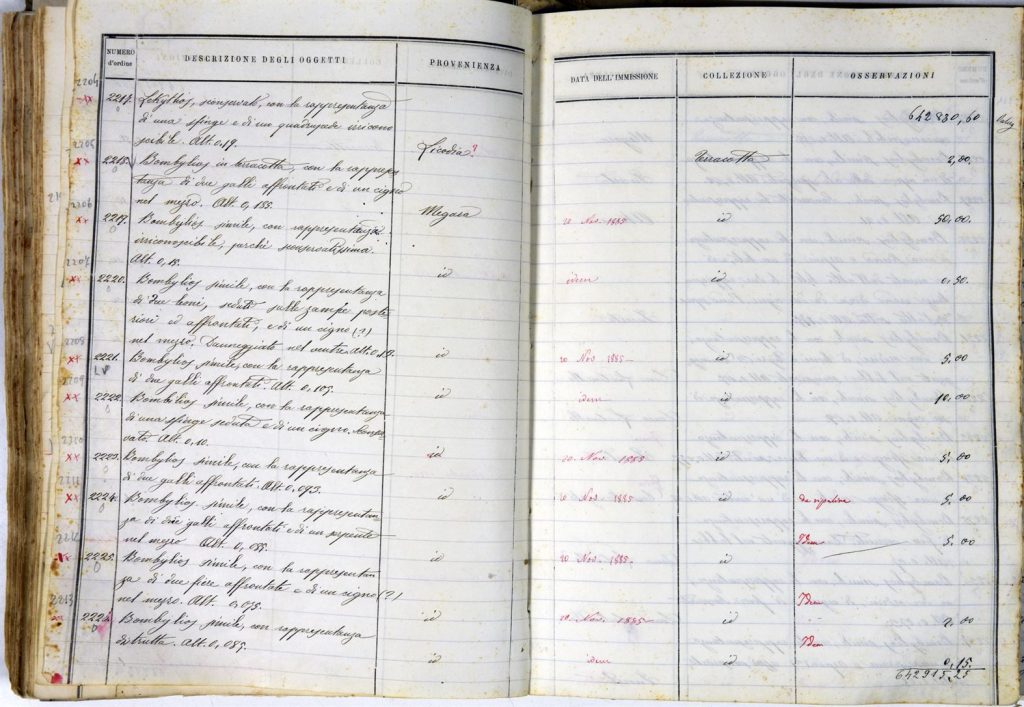 NUMERO d'ordine
DESCRIZIONE DEGLI OGGETTI
PROVENIENZA
DATA DELL'IMMISSIONE
COLLEZIONE
OSSERVAZIONI
642880,60
2204
2217. Lekythos, sconservat, con la rappresentanza
di una sfinge e di un quadrupede irricono
scibile. Alt. 0,19.
Licodia?
terracotta
2,00.
2205
xx
2218. Bombylios in terracotta, con la rappresen
tanza di due galli affrontati e di un cigno
nel mezzo. Alt. 0,185.
Megara
20 Nov. 1885
id
50,00.
2206
xx
2219. Bombylios simile, con rappresentanza
irriconoscibile, perchè sconservatissima.
Alt. 0,18.
id
idem
id
0,50.
2207
xx
2220. Bombylios simile, con la rappresentanza
di due leoni, seduti sulle zampe poste
riori ed affrontati, e di un cigno (?)
nel mezzo. Danneggiato nel ventre. Alt. 0,19.
id
20 Nov. 1885
id
5,00
2208
xx
2221. Bombylios simile, con la rappresentanza
LV
di due galli affrontati. Alt. 0,105.
id
idem
id
10,00
2209
xx
2222. Bombylios simile, con la rappresentanza
di una sfinge seduta e di un cigno. Sconser
vato. Alt. 0,10.
id
20. Nov. 1885
id
5,00
2210
xx
2223. Bombylios simile, con la rappresentanza
di due galli affrontati. Alt. 0,093.
id
20 Nov. 1885
id
5,00
2211
xx
2224. Bombylios simile, con la rappresentan
za di due galli affrontati e di un serpente
nel mezzo. Alt. 0,085.
id
20 Nov. 1885.
id
Idem
5,00
2212
xx
2225. Bombylios simile, con la rappresentan
za di due fiere affrontate e di un cigno (?)
nel mezzo. Alt. 0,075.
id
20 Nov. 1885
id
Idem
2,00
2213
2226. Bombylios simile, con rappresentanza
distrutta. Alt. 0,085.
id
idem
id
Idem
0,15.
642915,25